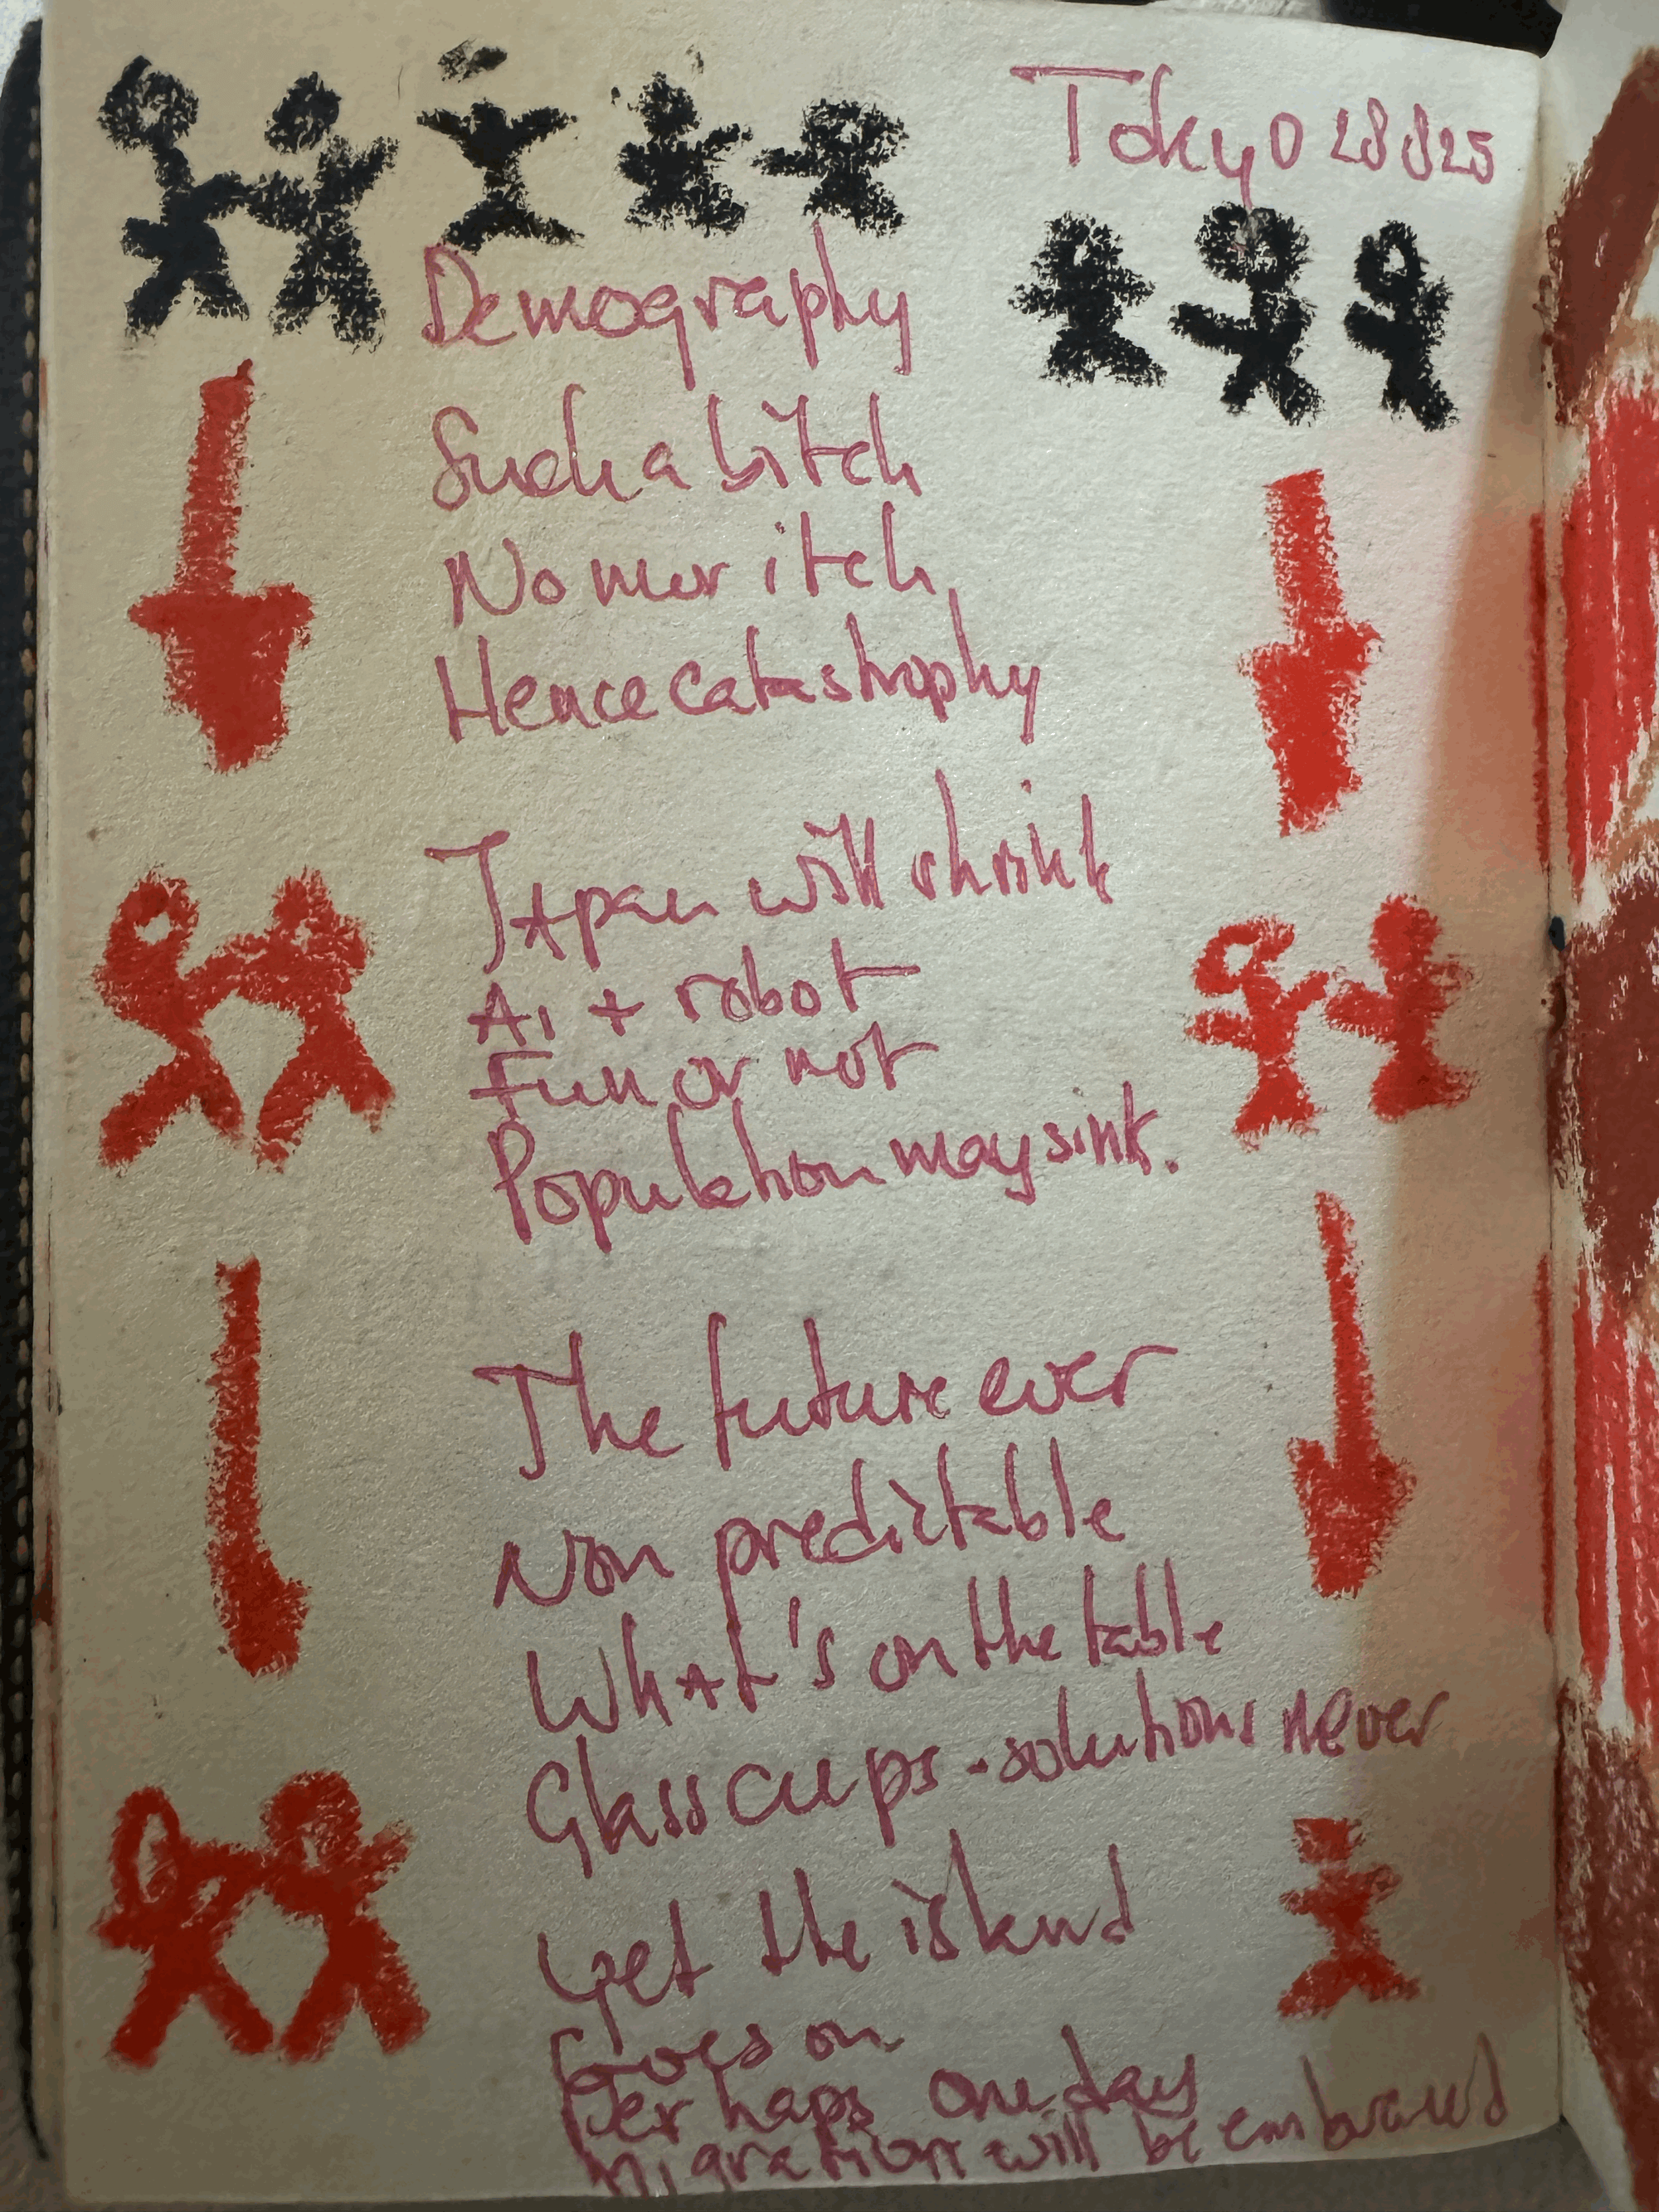 Tokyo 28 8 25
Demography
Such a bitch
No mor itch
Hence catastrophy
JApan will shrink
Ai + robot
Fun or not
Population may sink.
The future ever
Non predictable
WhAt's on the table
Glass cups - solutions never
Yet the island
Goes on
Perhaps one day
Migration will be embraced